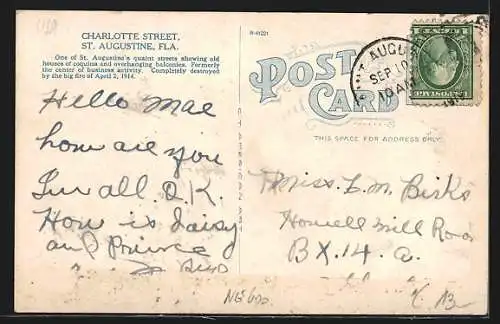 CHARLOTTE STREET,
ST. AUGUSTINE, FLA.
One of St. Augustine's quaint streets showing old
houses of coquina and overhanging balconies. Formerly
the center of business activity. Completely destroyed
by the big fire of April 2, 1914.
Hello Mae
how are you
I'm all O.K.
How is daisy
and Prince
R-41221
POST
CARD
THIS SPACE FOR ADDRESS ONLY
ST. AUGUS
SEP 10
10 AM
Miss L. M. Birks
Howell Mill Road
BX. 14. a.